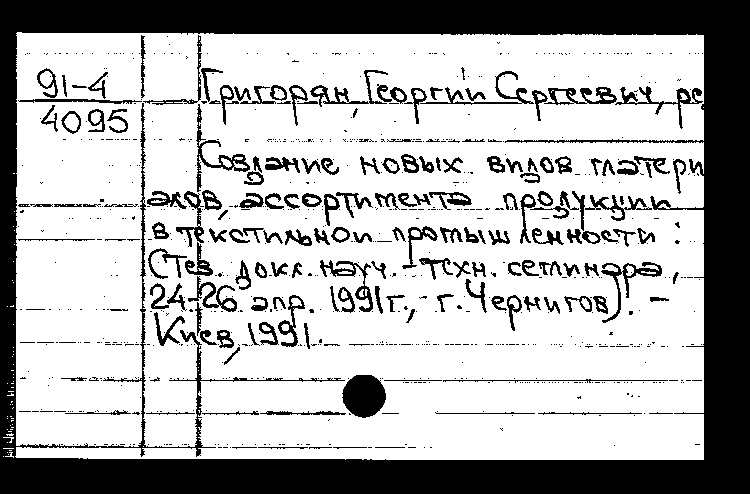 91-4
4095
Григорян, Георгий Сергеевич, ре
Создание новых видов матери
алов, ассортимента продукции
в текстильной промышленности :
(Тез. докл. науч.-техн. семинара,
24-26 апр. 1991 г., г. Чернигов). -
Киев, 1991.